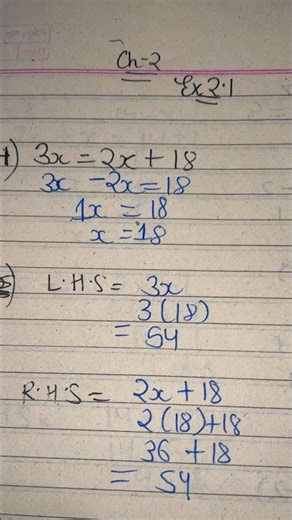 Ch-2
Ex 2.1
1) 3x = 2x + 18
3x - 2x = 18
1x = 18
x = 18
L.H.S = 3x
3(18)
= 54
R.H.S = 2x + 18
2(18)+18
36 + 18
= 54